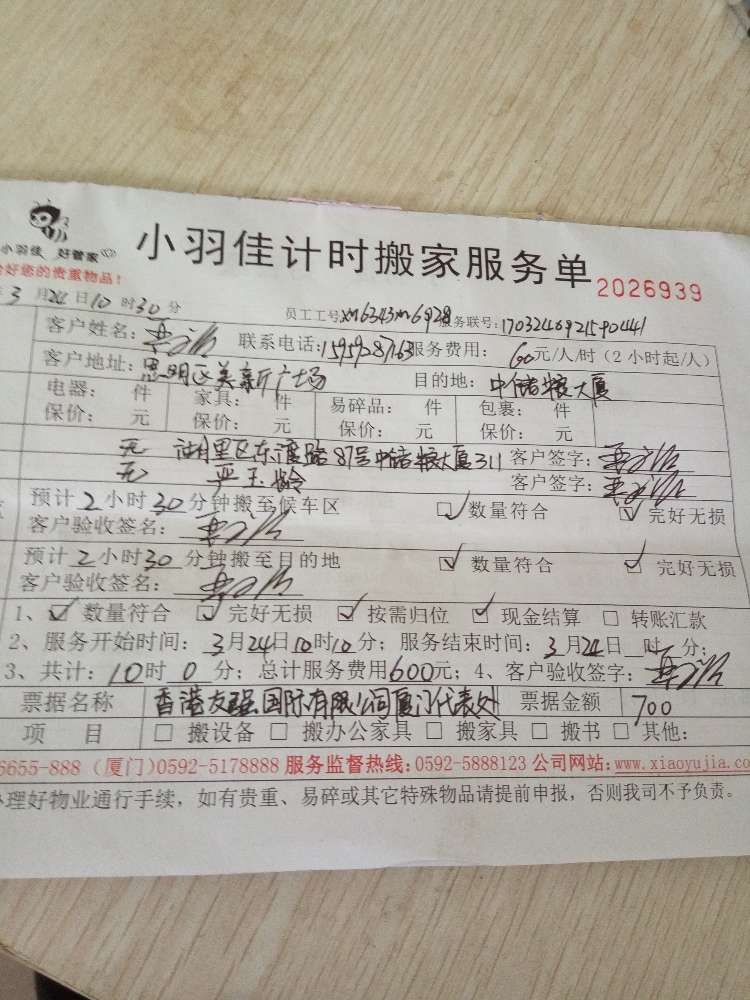 小羽佳 好管家
小羽佳计时搬家服务单
2026939
好您的贵重物品!
3月24日10时30分
员工工号xm6343xm6928服务联号:
客户姓名: 联系电话: 服务费用:60元/人/时(2小时起/人)
客户地址:思明区美新广场 目的地:中储粮大厦
电器: 件 家具: 件 易碎品: 件 包裹: 件
保价: 元 保价: 元 保价: 元 保价: 元
无 湖里区东渡路87号中储粮大厦311 客户签字:
无 严玉龄 客户签字:
预计2小时30分钟搬至候车区 ☑数量符合 ☑完好无损
客户验收签名:
预计2小时30分钟搬至目的地 ☑数量符合 ☑完好无损
客户验收签名:
1、☑数量符合 ☑完好无损 ☑按需归位 ☑现金结算 □转账汇款
2、服务开始时间:3月24日10时10分;服务结束时间:3月24日 时 分;
3、共计:10时0分;总计服务费用600元;4、客户验收签字:
票据名称 香港友强国际有限公司厦门代表处 票据金额 700
项 目 □搬设备 □搬办公家具 □搬家具 □搬书 □其他:
6655-888(厦门)0592-5178888 服务监督热线:0592-5888123 公司网站:www.xiaoyujia.co
理好物业通行手续,如有贵重、易碎或其它特殊物品请提前申报,否则我司不予负责。